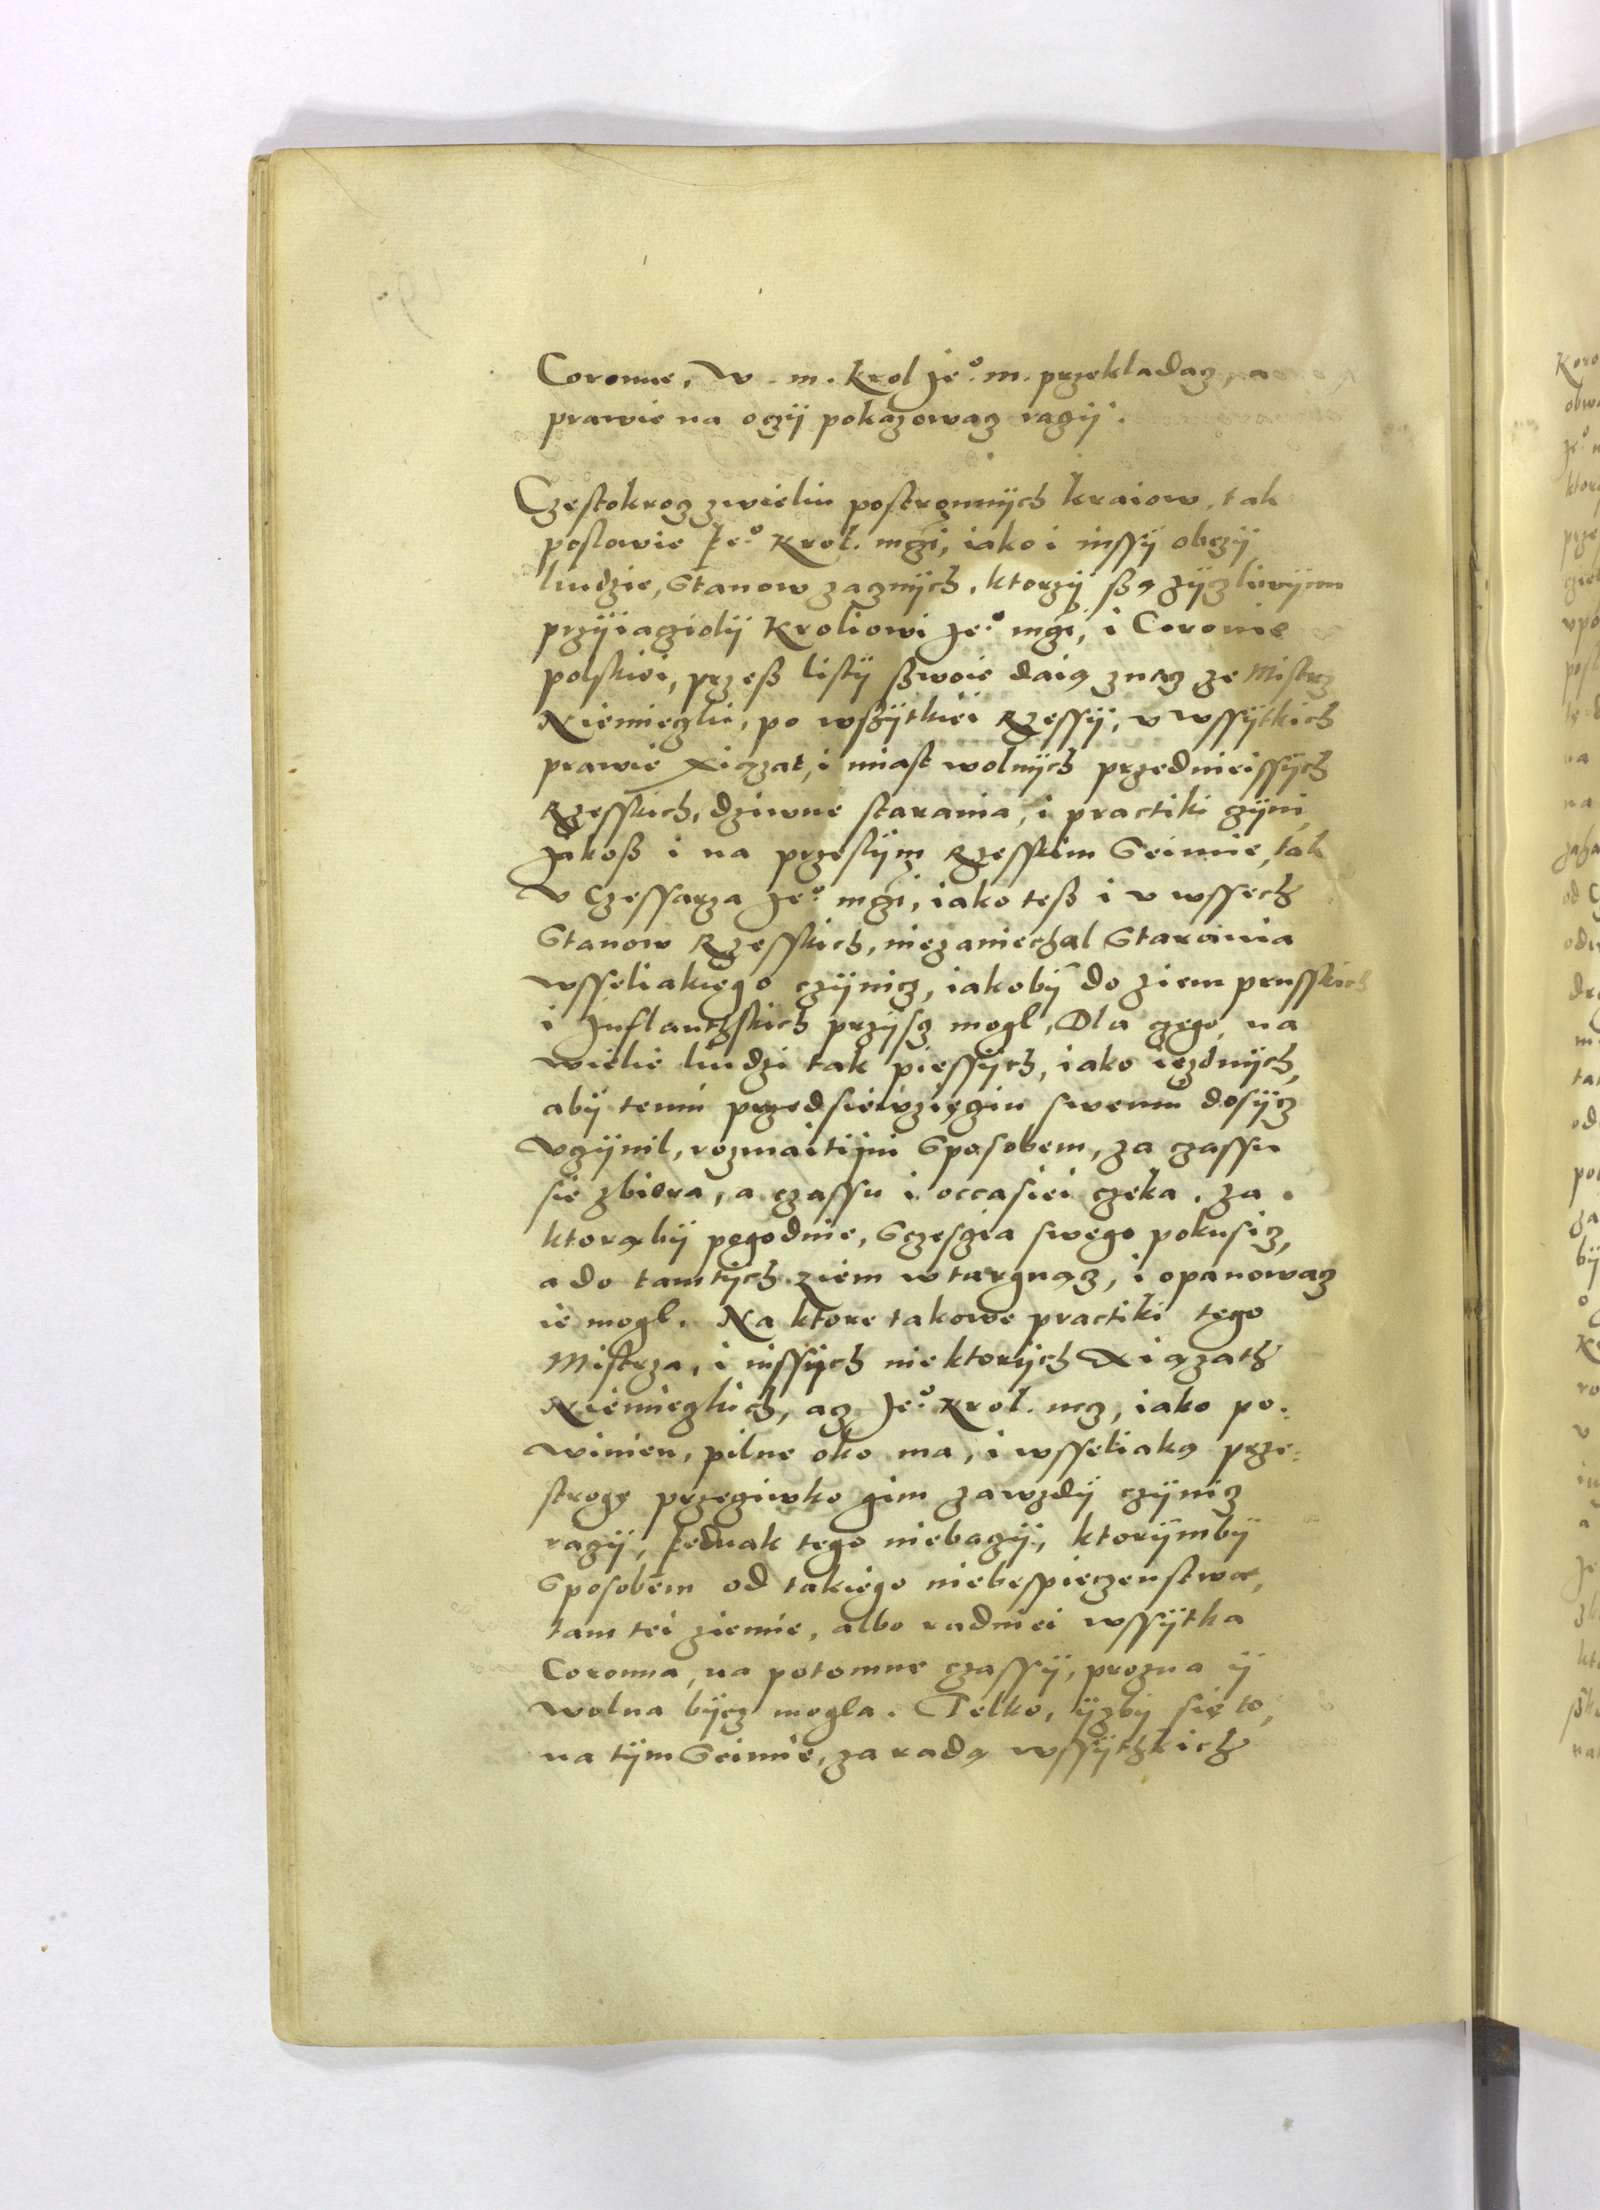 Coronne, W. m. Krol Je.º m. przekladacz, a
prawie na oczÿ pokazowacz raczÿ.
Czestokrocz zwieliu postronnÿch kraiow, tak
poslowie Je.º Krol. mczi, iako i inssÿ obczÿ
liudzie, Stanow zacznÿch, ktorzÿ ßą zÿczliwÿmi
przÿiacziolÿ Kroliowi Je.º mczi, i Coronie
polskiei, przeß listÿ ßwoie daią znacz ze Mistrz
Niemieczki, po wßÿtkiei Rzessÿ, v wssÿtkich
prawie Xiązat, i miast wolnÿch przednieissÿch
Rzesskich, dziwne starania, i practiki czÿni,
Jakoß i na przeslÿm Rzesskim Seimie, tak
v Czessarza Je.º mczi, iako teß i v wssech
Stanow Rzesskich, niezaniechal Starania
wsseliakiego czÿnicz, iakobÿ do ziem prusskich
i Jnflanczskich przÿscz mogl, Dla czego, na
wielie liudzi tak piessÿch, iako iezdnÿch,
abÿ temu przedsiewzięciu swemu dosÿcz
vczÿnil, rozmaitÿm Sposobem, za czassu
sie zbiera, a czassu i occasiei czeka, za
ktorąbÿ pogodnie, Sczesczia swego pokusicz,
a do tamtÿch ziem wtargnącz, i opanowacz
ie mogl. Na ktore takowe practiki tego
Mistrza, i inssÿch niektorÿch Xiązath
Niemieczkich, acz Je.º Krol. mcz, iako po-
winien, pilne oko ma, i wsseliaką prze-
strogę przecziwko gim zawzdÿ czÿnicz
raczÿ, Jednak tego niebaczÿ, ktorÿmbÿ
Sposobem od takiego niebespieczenstwa,
tam tei ziemie, albo radniei wssÿtka
Coronna, na potomne czassÿ, prozna ÿ
wolna bÿcz mogla. Telko, ÿzbÿ się to,
na tÿm Seimie, za radą wssÿthkich